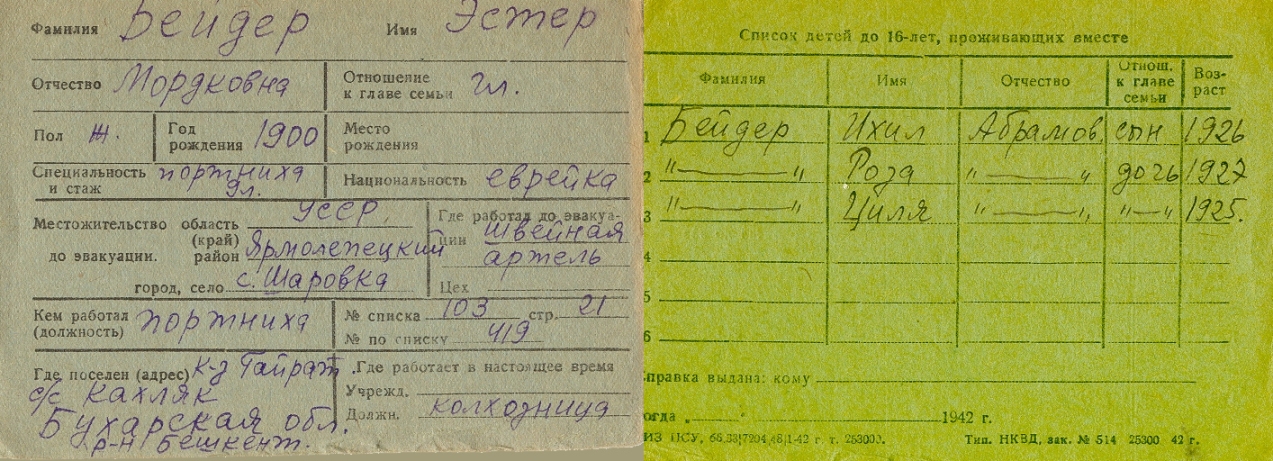 Фамилия Бейдер Имя Эстер
Отчество Мордковна Отношение к главе семьи гл.
Пол ж. Год рождения 1900 Место рождения
Специальность и стаж портниха 9л. Национальность еврейка
Местожительство область УССР.
(край)
до эвакуации. район Ярмолепецкий
город, село с. Шаровка
Где работал до эвакуа-
ции швейная
артель
Цех
Кем работал
(должность) портниха
№ списка 103 стр. 21
№ по списку 419
Где поселен (адрес) к-з Гайрат
с/с Кахляк
Бухарская обл.
р-н Бешкент.
Где работает в настоящее время
Учрежд.
Должн. колхозница
Список детей до 16-лет, проживающих вместе
Фамилия Имя Отчество Отнош. к главе семьи Воз-раст
1 Бейдер Ихил Абрамов. сын 1926
2 " — " Роза " — " дочь 1927
3 " — " Циля " — " " — " 1925.
4
5
6
справка выдана: кому
когда „ " 1942 г.
Тип. НКВД, зак. № 514 25300 42 г.